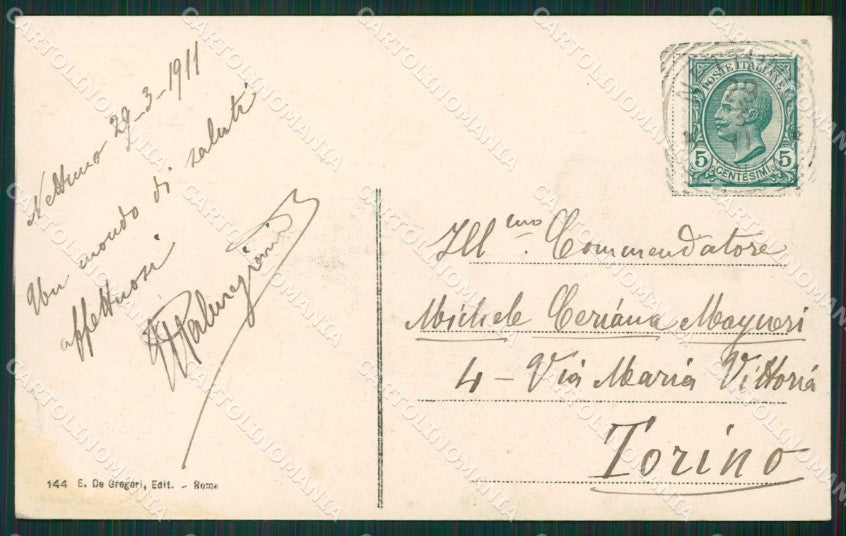 Nettuno 29-3-1911
Un mondo di saluti
affettuosi
144 E. De Gregori, Edit. - Rome
POSTE ITALIANE
5 5
CENTESIMI
Ill.mo Commendatore
Michele Ceriana Mayneri
4 - Via Maria Vittoria
Torino
CARTOLINOMANIA